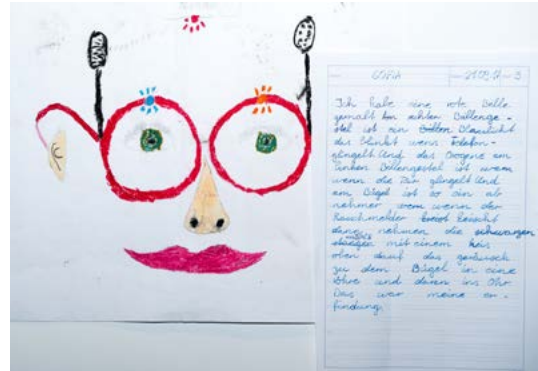 SOFIA 21.09.17 3
Ich habe eine rote Belle
gemalt am rehten Bellenge-
stel ist ein Blaulicht
das Blinkt wens Telefon-
glingelt Und das Orogene am
linken Bellengestel ist wem
wenn die Tür glingelt Und
am Bügel ist so ein ab
nehmer wenn der
Rauchmelder kreischt
dann nehmen die schwarzen
staebchen mit einem kreis
oben drauf das geräusch
zu dem Bügel in eine
Röhre und dann ins Ohr
Das war meine er-
findung.